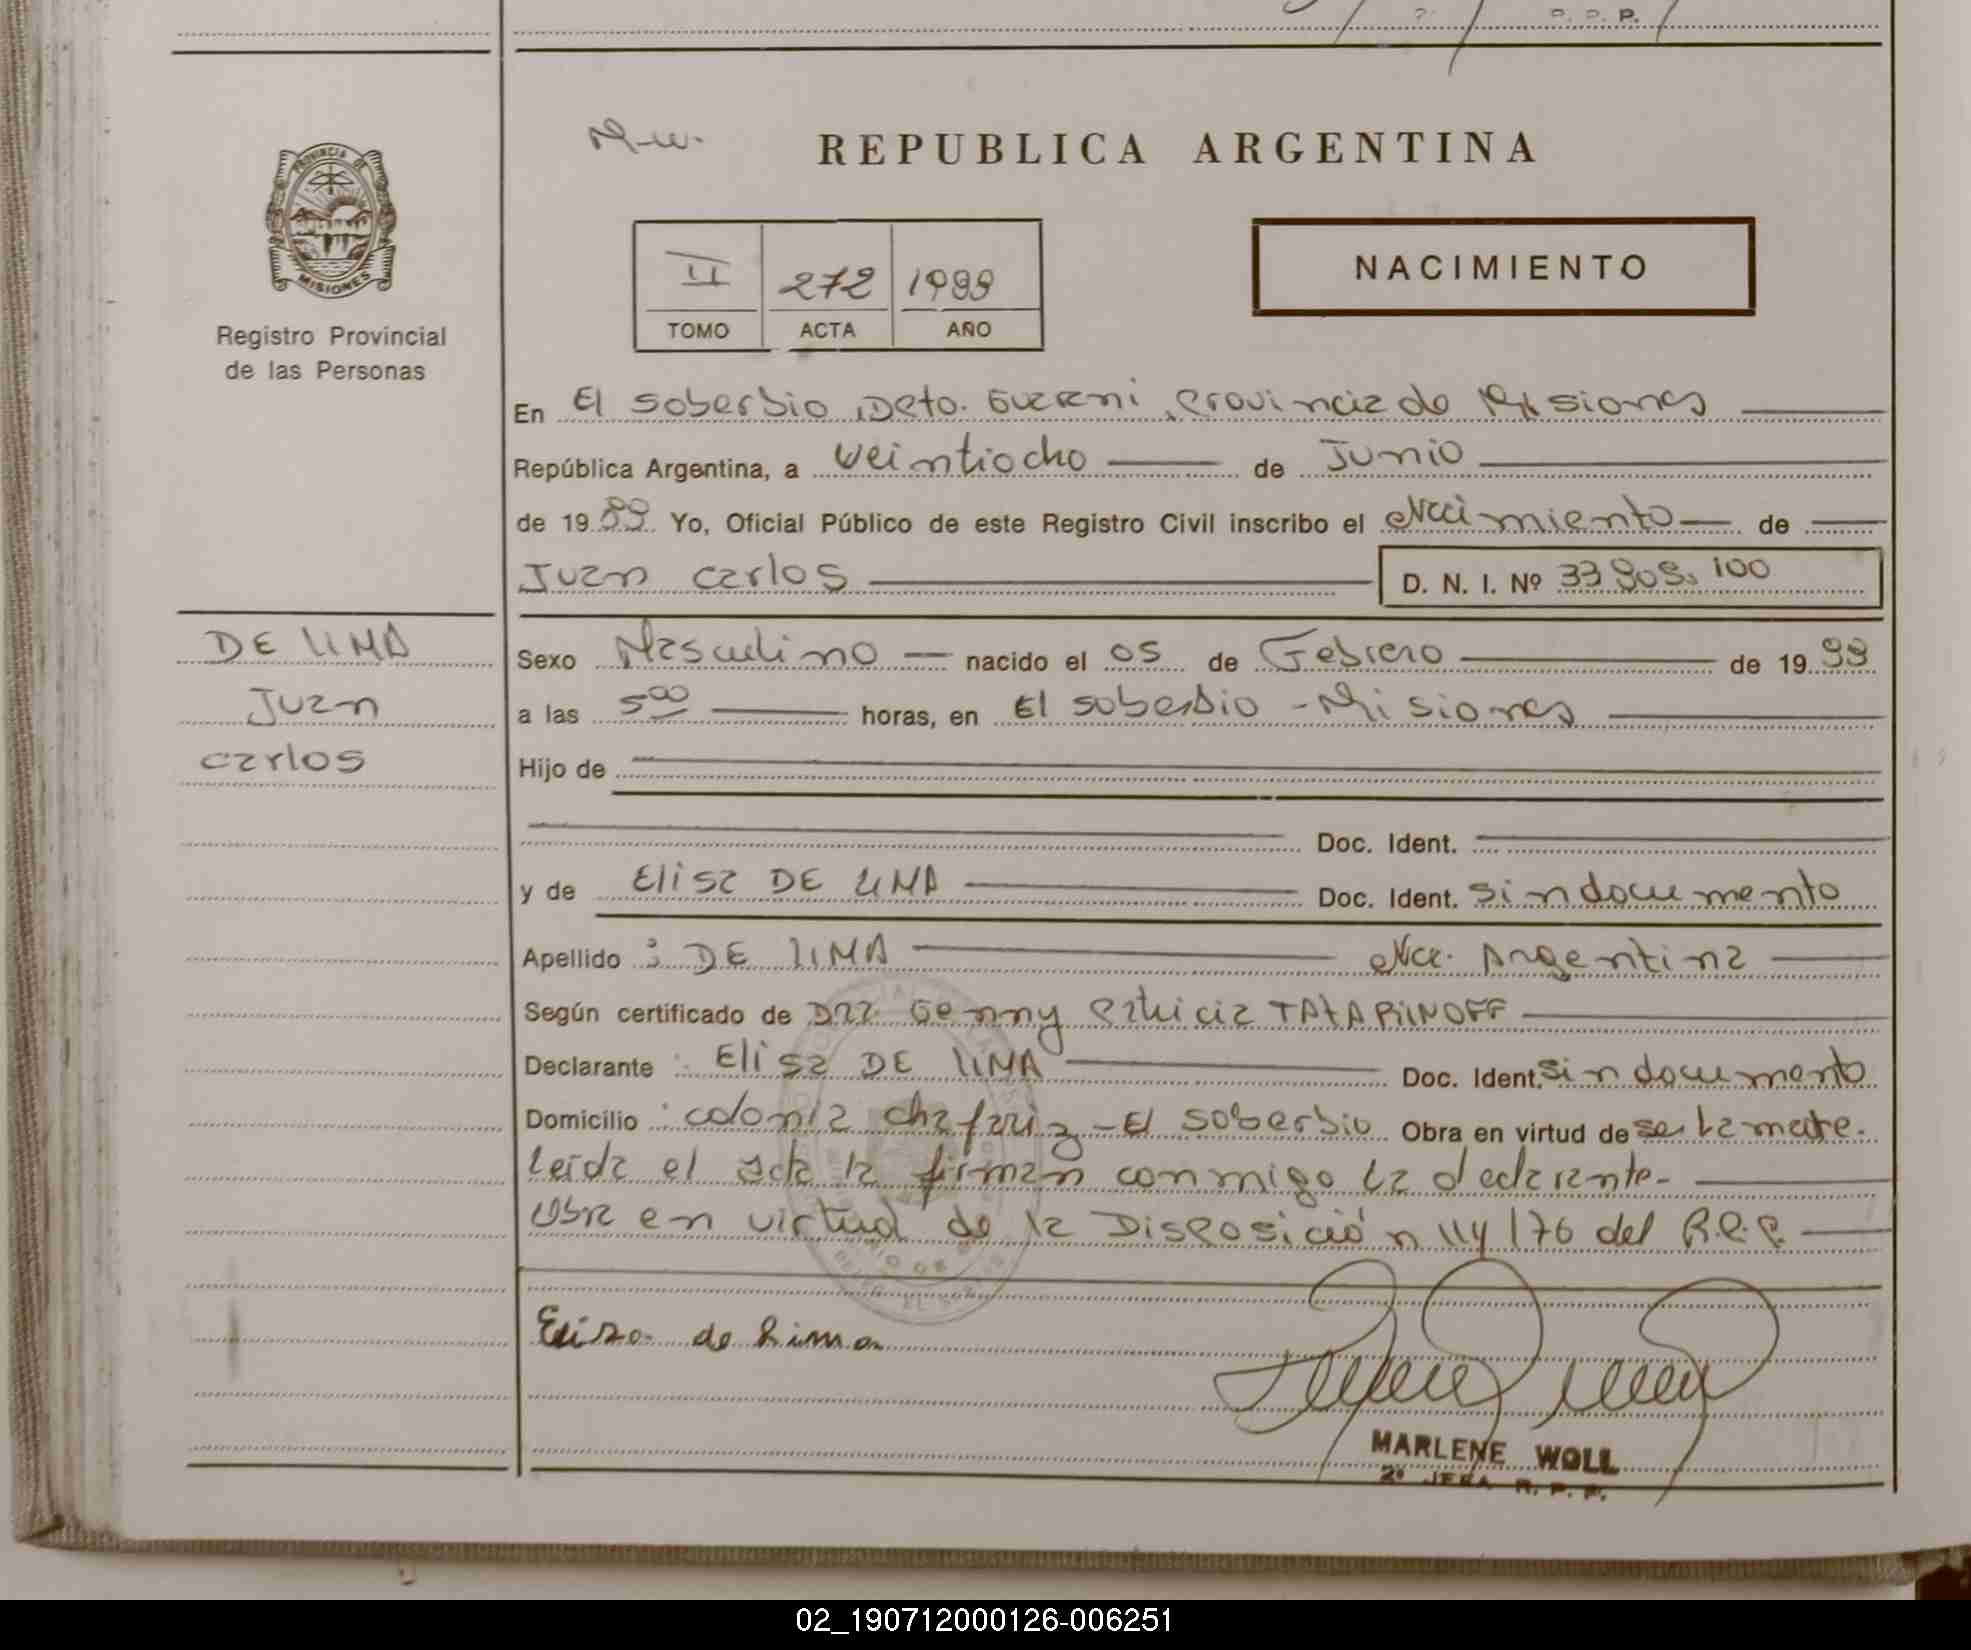 P.
M-w.
REPUBLICA ARGENTINA
PROVINCIA DE
MISIONES
Registro Provincial
de las Personas
II 272 1989
TOMO ACTA AÑO
NACIMIENTO
En El soberbio, Dpto. Guarani, Provincia de Misiones
República Argentina, a Veintiocho de Junio
de 1989 Yo, Oficial Público de este Registro Civil inscribo el Nacimiento de
Juan carlos D. N. I. Nº 33.909.100
DE LIMA
Juan
carlos
Sexo Masculino nacido el 05 de Febrero de 1989
a las 5⁰⁰ horas, en El soberbio - Misiones
Hijo de
Doc. Ident.
y de Elisa DE LIMA Doc. Ident. sin documento
Apellido : DE LIMA Nac. Argentina
Según certificado de Dra. Genny Patricia TATARINOFF
Declarante : Elisa DE LIMA Doc. Ident. sin documento
Domicilio : colonia chafariz - El soberbio Obra en virtud de ser la madre.
Leida el acta la firman conmigo la declarante-
Obra en virtud de la Disposición 114/76 del R.P.P.
Elisa de Lima
MARLENE WOLL
2º JEFA R. P. P.
02_190712000126-006251